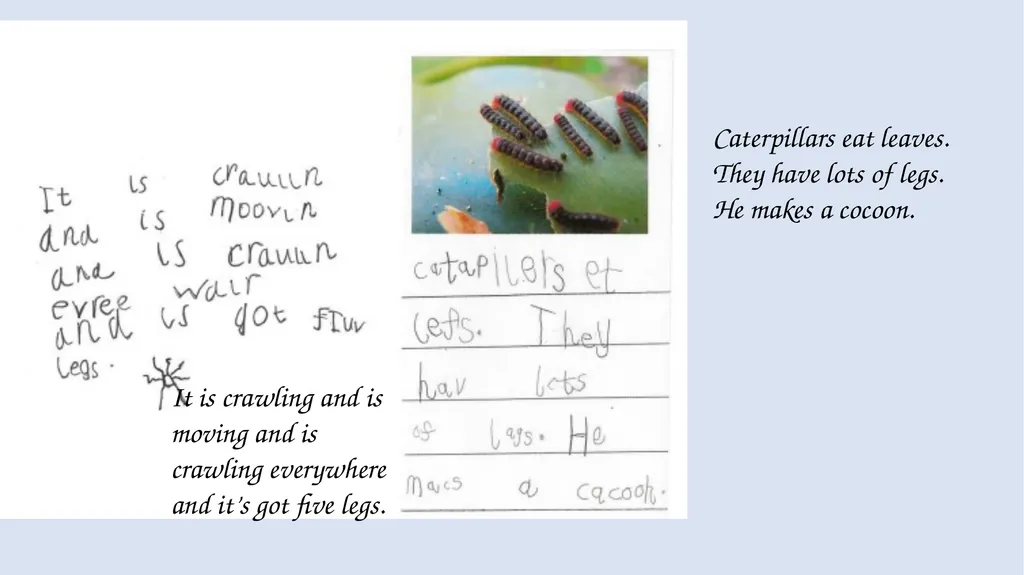 It is craulln
and is moovin
and is crauun
evree wair
and is got fiuv
legs.
It is crawling and is
moving and is
crawling everywhere
and it's got five legs.
catapilers et
lefs. They
hav lots
of lags. He
macs a cacoon.
Caterpillars eat leaves.
They have lots of legs.
He makes a cocoon.